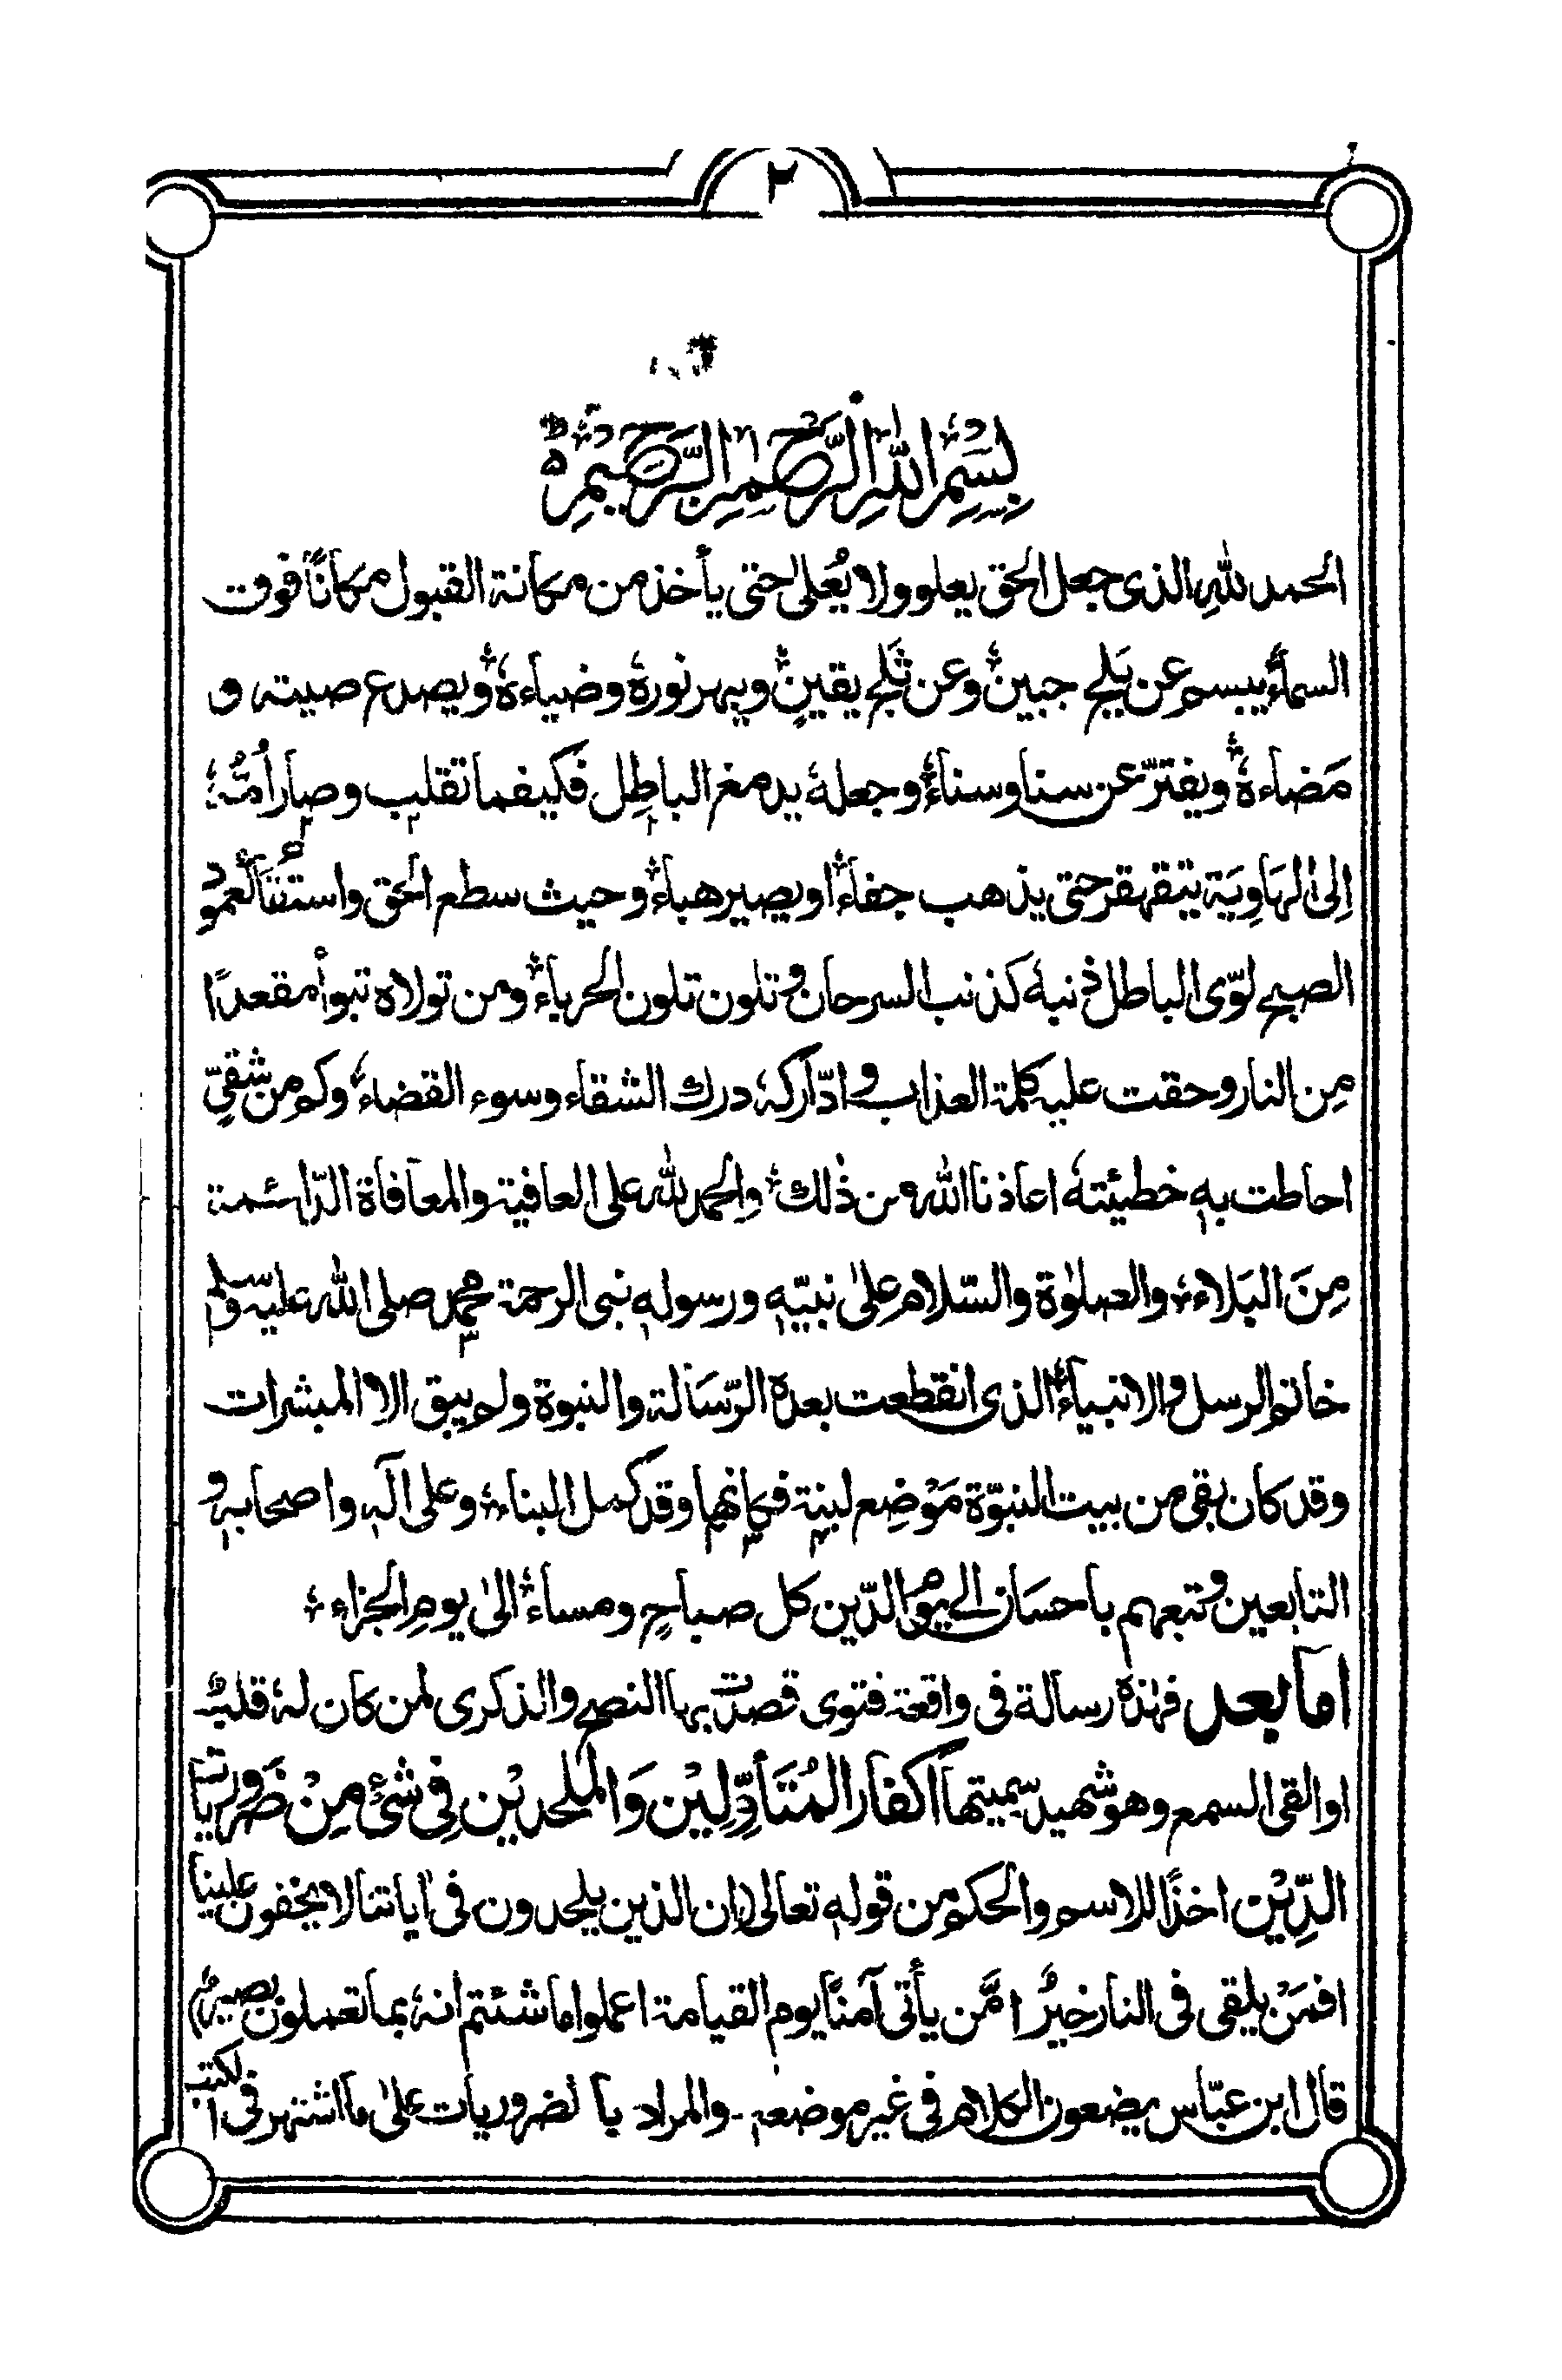 ٢
بِسْمِ اللهِ الرَّحْمٰنِ الرَّحِيْمِ
الحمد للهِ الذى جعل الحق يعلو ولا يُعلىٰ حتى يأخذ من مكانة القبول مكانًا فوق
السماء يبسم عن بَلَج جبين وعن ثَلَج يقينٍ ويبهر نورهٗ وضياءهٗ ويصدع صيته و
مَضاءهٗ ويفترّ عن سنا وسناء وجعلهٗ يدمغ الباطِل فكيفما تقلب وصار أمُّهٗ
إلى الهَاوِيَة يتقهقر حتى يذهب جفاءً او يصير هباءً وحيث سطع الحق واستقام كعمود
الصبح لوّى الباطل ذنبهٗ كذنب السرحان وتلون تلون الحرباء ومن تولاه تبوأ مقعدًا
مِن النار وحقت عليه كلمة العذاب وادّاركهٗ درك الشقاء وسوء القضاء وكم من شقيّ
احاطت به خطيئتهٗ اعاذنا الله من ذٰلك والحمد لله على العافية والمعافاة الدّائمة
مِنَ البَلاء والصلوٰة والسّلام علىٰ نبيّه ورسوله نبى الرحمة محمد صلى الله عليه وسلم
خاتم الرسل والانبياء الذى انقطعت بعده الرّسَالة والنبوة ولم يبق الا المبشرات
وقد كان بقى من بيت النبوّة مَوْضِع لبنة فكانها وقد كمل البناء وعلى آله واصحابه و
التابعين وتبعهم باحسَان الى يوم الدّين كل صباحٍ ومساء الىٰ يومِ الجزاء
اما بعد فهٰذه رسالة فى واقعة فتوى قصدت بها النصح والذكرى لمن كان لهٗ قلب
او القى السمع وهو شهيد سميتها اكفار المُتَأَوِّلِيْن وَالملحديْن فِى شَىْءٍ مِنْ ضَرُوريات
الدِّيْن اخذًا للاسم والحكم من قوله تعالى (ان الذين يلحدون فى اٰياتنا لا يخفون علينا
افمَنْ يلقى فى النار خيرٌ امَّن يأتى آمنًا يوم القيامة اعملوا ما شئتم انهٗ بما تعملون بصيرٌ)
قال ابن عبّاس يضعون الكلام فى غير موضعه - والمراد بالضروريات علىٰ ما اشتهر فى الكتب